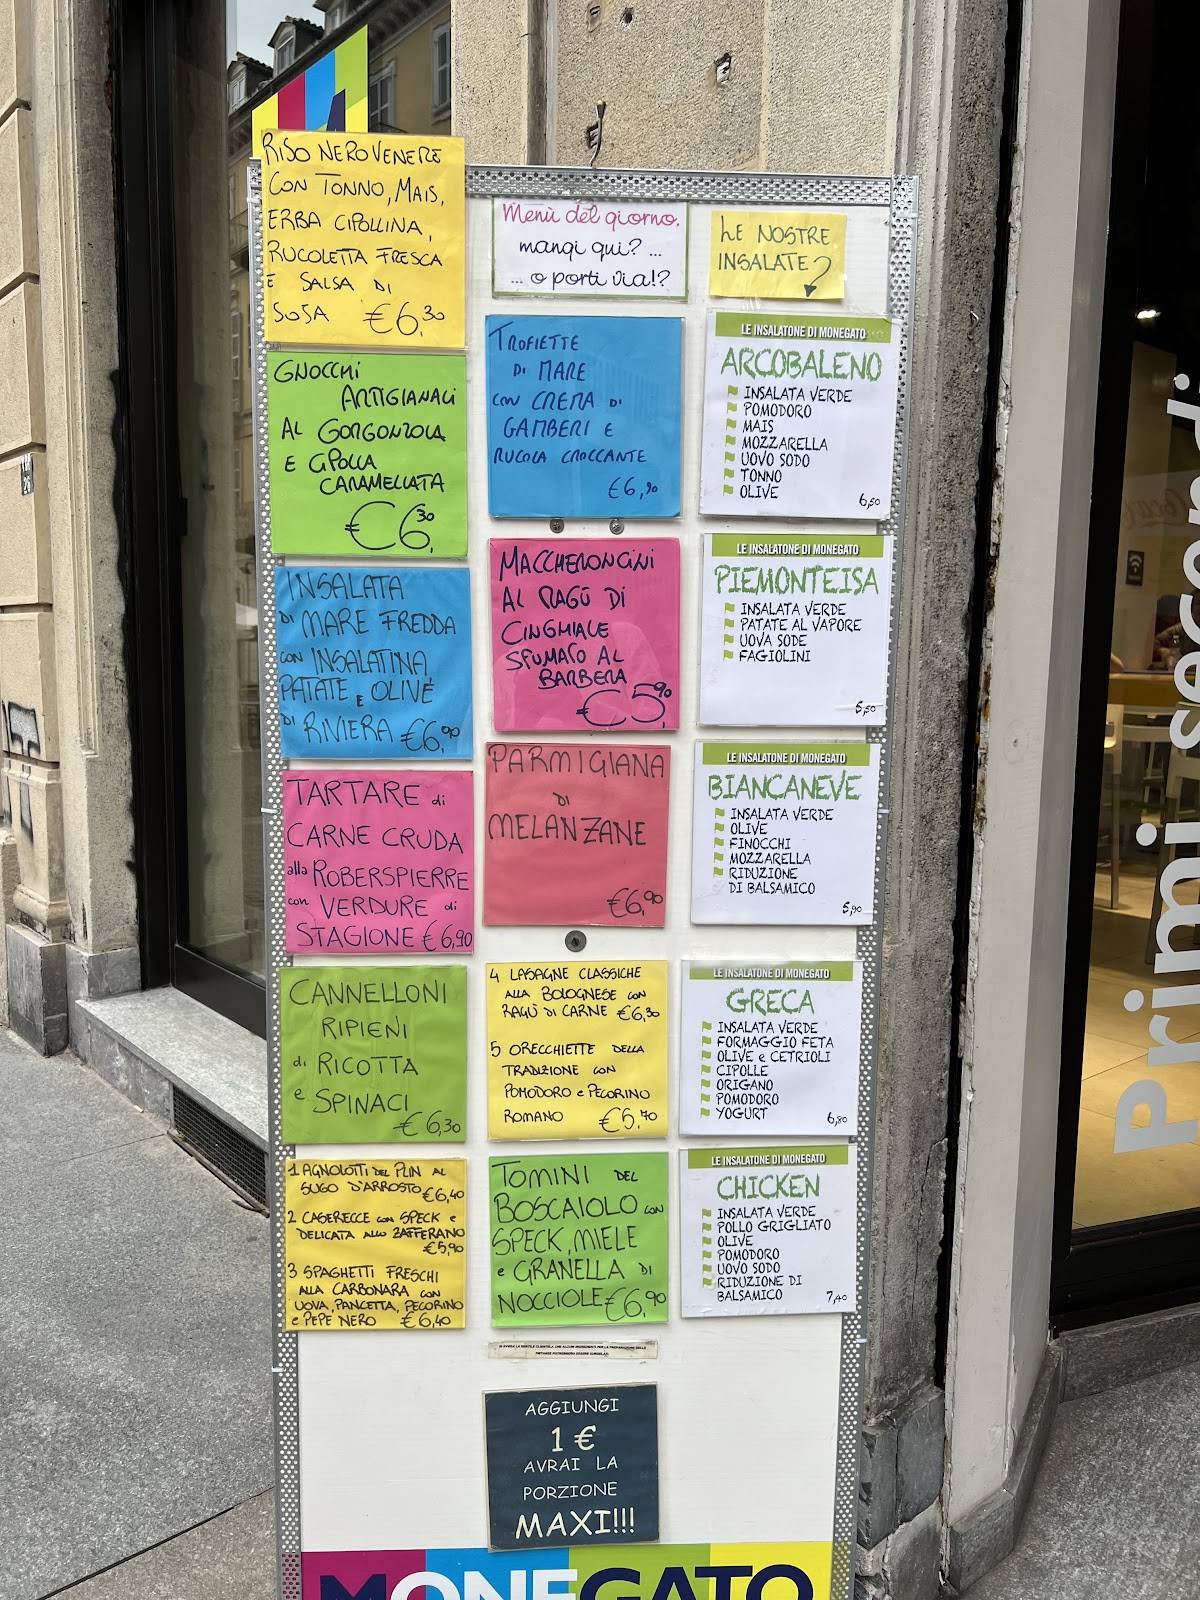 RISO NERO VENERE
CON TONNO, MAIS,
ERBA CIPOLLINA,
RUCOLETTA FRESCA
E SALSA DI
SOJA €6,30
GNOCCHI
ARTIGIANALI
AL GORGONZOLA
E CIPOLLA
CARAMELLATA
€6,30
INSALATA
DI MARE FREDDA
CON INSALATINA,
PATATE E OLIVE
DI RIVIERA €6,90
TARTARE di
CARNE CRUDA
alla ROBERSPIERRE
con VERDURE di
STAGIONE €6,90
CANNELLONI
RIPIENI
di RICOTTA
e SPINACI
€6,30
1 AGNOLOTTI DEL PLIN AL
SUGO D'ARROSTO €6,40
2 CASERECCE CON SPECK E
DELICATA ALLO ZAFFERANO
€5,90
3 SPAGHETTI FRESCHI
ALLA CARBONARA CON
UOVA, PANCETTA, PECORINO
e PEPE NERO €6,40
Menù del giorno,
mangi qui? ...
... o porti via!?
TROFIETTE
DI MARE
CON CREMA DI
GAMBERI E
RUCOLA CROCCANTE
€6,90
MACCHERONCINI
AL RAGÙ DI
CINGHIALE
SFUMATO AL
BARBERA
€5,90
PARMIGIANA
DI
MELANZANE
€6,90
4 LASAGNE CLASSICHE
ALLA BOLOGNESE CON
RAGÙ DI CARNE €6,30
5 ORECCHIETTE DELLA
TRADIZIONE CON
POMODORO e PECORINO
ROMANO €5,70
TOMINI DEL
BOSCAIOLO CON
SPECK, MIELE
e GRANELLA DI
NOCCIOLE €6,90
AGGIUNGI
1 €
AVRAI LA
PORZIONE
MAXI!!!
LE NOSTRE
INSALATE
LE INSALATONE DI MONEGATO
ARCOBALENO
INSALATA VERDE
POMODORO
MAIS
MOZZARELLA
UOVO SODO
TONNO
OLIVE
6,50
LE INSALATONE DI MONEGATO
PIEMONTEISA
INSALATA VERDE
PATATE AL VAPORE
UOVA SODE
FAGIOLINI
5,50
LE INSALATONE DI MONEGATO
BIANCANEVE
INSALATA VERDE
OLIVE
FINOCCHI
MOZZARELLA
RIDUZIONE
DI BALSAMICO
5,90
LE INSALATONE DI MONEGATO
GRECA
INSALATA VERDE
FORMAGGIO FETA
OLIVE e CETRIOLI
CIPOLLE
ORIGANO
POMODORO
YOGURT
6,80
LE INSALATONE DI MONEGATO
CHICKEN
INSALATA VERDE
POLLO GRIGLIATO
OLIVE
POMODORO
UOVO SODO
RIDUZIONE DI
BALSAMICO
7,40
MONEGATO
Primi secondi